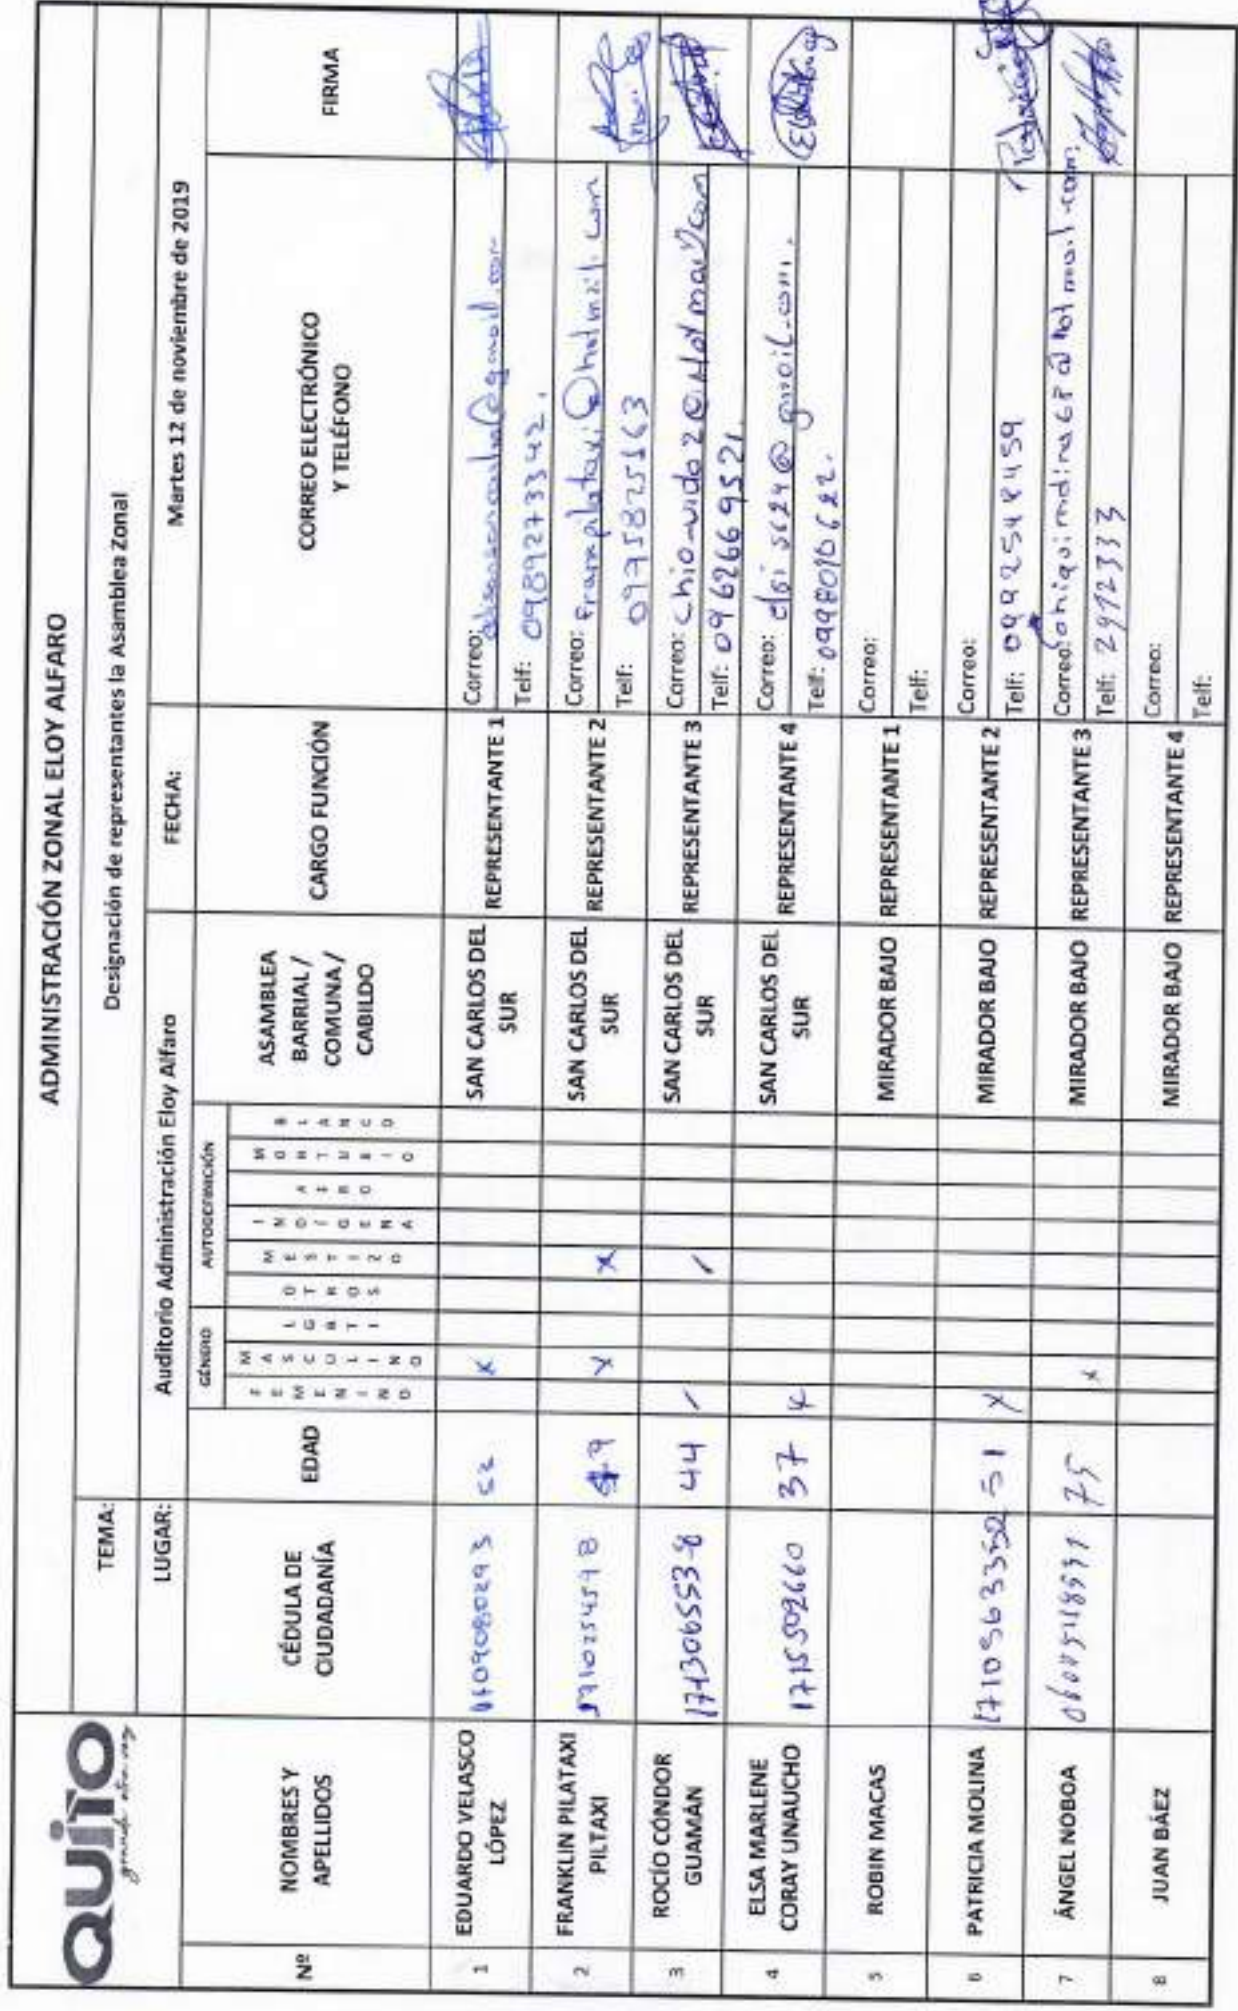 QUITO
grande otra vez
ADMINISTRACIÓN ZONAL ELOY ALFARO
TEMA: Designación de representantes la Asamblea Zonal
LUGAR: Auditorio Administración Eloy Alfaro FECHA: Martes 12 de noviembre de 2019
Nº NOMBRES Y APELLIDOS CÉDULA DE CIUDADANÍA EDAD GÉNERO AUTODEFINICIÓN ASAMBLEA BARRIAL / COMUNA / CABILDO CARGO FUNCIÓN CORREO ELECTRÓNICO Y TELÉFONO FIRMA
FEMENINO MASCULINO LGBTI OTROS MESTIZO INDÍGENA AFRO MONTUBIO BLANCO
1 EDUARDO VELASCO LÓPEZ 52 x SAN CARLOS DEL SUR REPRESENTANTE 1 Correo:
Telf: 0989273342.
2 FRANKLIN PILATAXI PILTAXI x x SAN CARLOS DEL SUR REPRESENTANTE 2 Correo: Frampilataxi@hotmail.com
Telf: 0975825563
3 ROCÍO CÓNDOR GUAMÁN 171306553-8 44 / / SAN CARLOS DEL SUR REPRESENTANTE 3 Correo: Chio-vida2@Hotmail.com
Telf: 0962669521.
4 ELSA MARLENE CORAY UNAUCHO 1715502660 37 x SAN CARLOS DEL SUR REPRESENTANTE 4 Correo: elsi5624@gmail.com.
Telf: 0998010622.
5 ROBIN MACAS MIRADOR BAJO REPRESENTANTE 1 Correo:
Telf:
6 PATRICIA MOLINA 1710563352 51 x MIRADOR BAJO REPRESENTANTE 2 Correo:
Telf: 0992548459
7 ÁNGEL NOBOA 75 x MIRADOR BAJO REPRESENTANTE 3 Correo:
Telf: 2912333
8 JUAN BÁEZ MIRADOR BAJO REPRESENTANTE 4 Correo:
Telf: